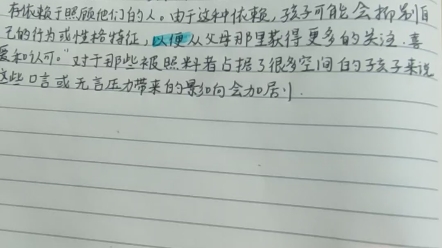 存依赖于照顾他们的人。由于这种依赖,孩子可能会抑制自
己的行为或性格特征,以便从父母那里获得更多的关注、喜
爱和认可。"对于那些被照料者占据了很多空间的孩子来说
这些口言或无言压力带来的影响会加剧.